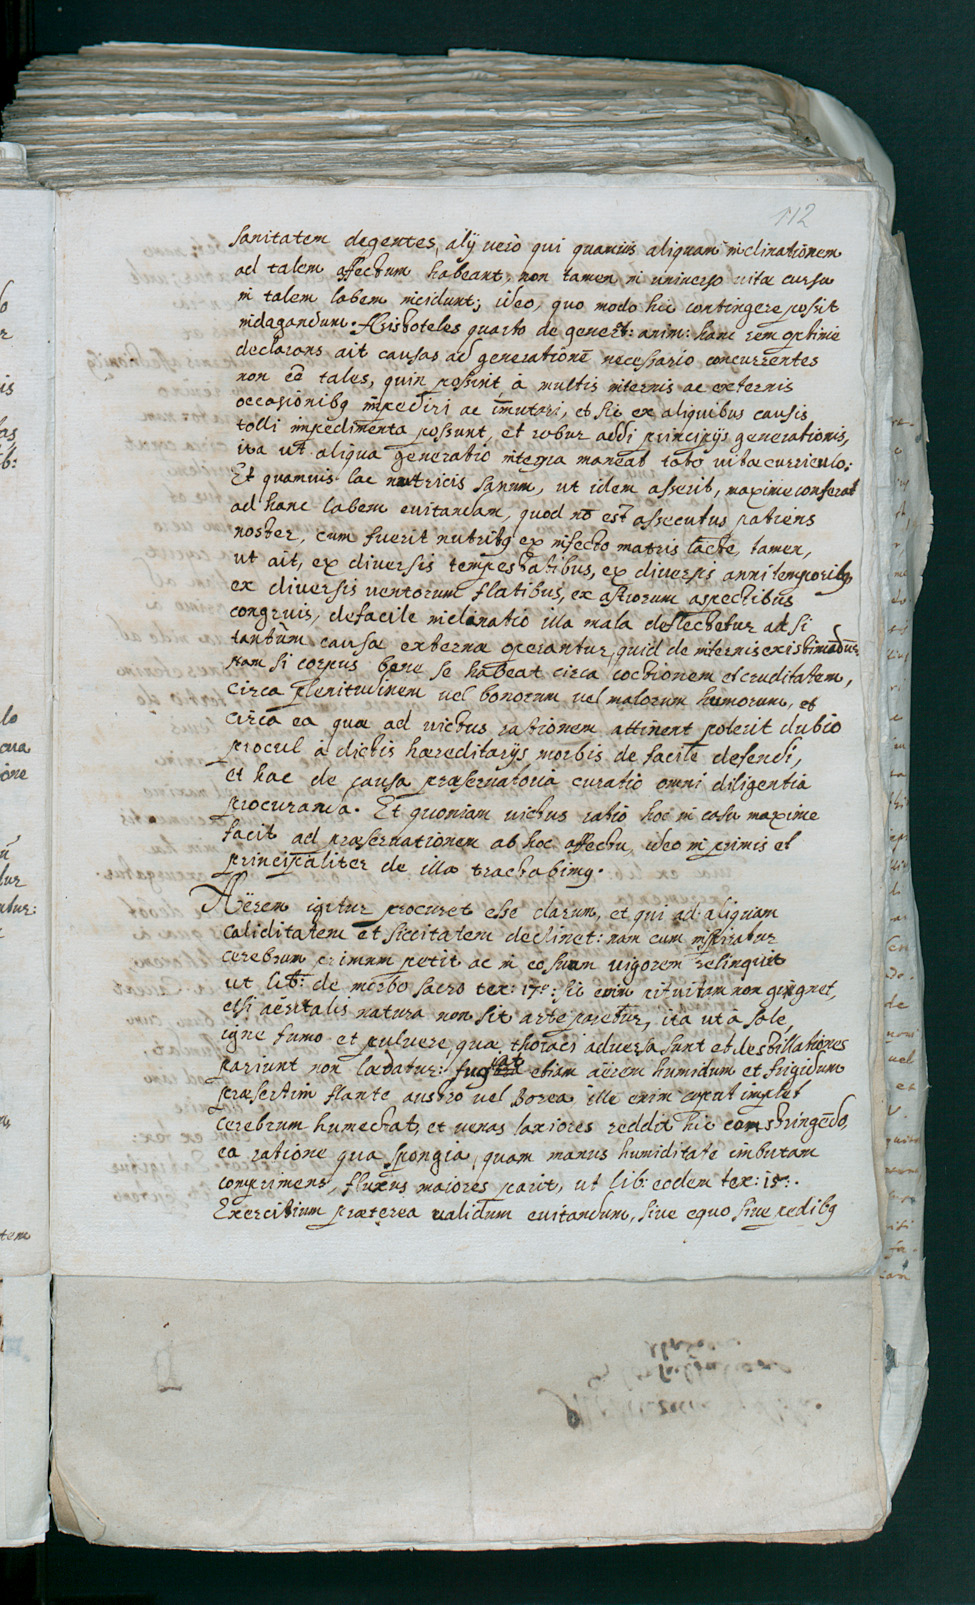 112
sanitatem degentes, alij uero qui quamuis aliquam inclinationem
ad talem affectum habeant, non tamen in uniuerso uitæ cursu
in talem labem incidunt; ideo, quo modo hic contingere possit
indagandum. Aristoteles quarto de generat: anim: hanc rem optime
declarans ait causas ad generationē necessario concurrentes
non eē tales, quin possint à multis internis ac externis
occasionibq impediri ac īmutari, et sic ex aliquibus causis
tolli impedimenta possunt, et robur addi principijs generationis,
ita ut aliqua generatio integra maneat toto uitæ curriculo:
Et quamuis lac nutricis sanum, ut idem asserit, maxime conferat
ad hanc labem euitandam, quod nō est assecutus patiens
noster, cum fuerit nutritq ex infecto matris lacte, tamen,
ut ait, ex diuersis tempestatibus, ex diuersis anni temporibq,
ex diuersis uentorum flatibus, ex astrorum aspectibus
congruis, defacile inclinatio illa mala deflectetur at si
tantum causæ externæ operantur, quid de internis existimādū:
nam si corpus bene se habeat circa coctionem et cruditatem,
circa plenitudinem uel bonorum uel malorum humorum, et
circa ea quæ ad uictus rationem attinent poterit dubio
procul à dictis hæreditarijs morbis de facile defendi,
et hac de causa præseruatoria curatio omni diligentia
procuranda. Et quoniam uictus ratio hoc in casu maxime
facit ad præseruationem ab hoc affectu, ideo in primis et
principaliter de illa tractabimq.
Aërem igitur procuret esse clarum, et qui ad aliquam
caliditatem et siccitatem declinet: nam cum inspiratur
cerebrum primum petit ac in eo suum uigorem relinquit
ut lib: de morbo sacro tex: 17º: sic enim pituitam non gignet,
etsi aër talis natura non sit arte paretur, ita ut à sole,
igne fumo et puluere, quæ thoraci aduersa sunt et destillationes
pariunt non lædatur: fugiat etiam aërem humidum et frigidum
præsertim flante austro uel Borea ille enim caput implet
cerebrum humectat, et uenas laxiores reddit hic constringēdo,
ea ratione qua spongia, quam manus humiditate imbutam
comprimens, fluxus maiores parit, ut lib: eodem tex: 15º:.
Exercitium præterea ualidum euitandum, siue equo siue pedibq